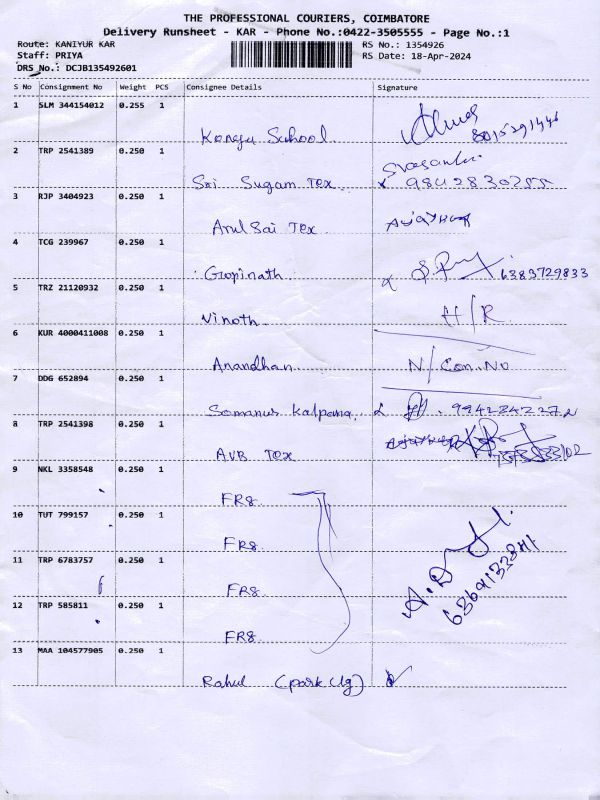 THE PROFESSIONAL COURIERS, COIMBATORE
Delivery Runsheet - KAR - Phone No.:0422-3505555 - Page No.:1
Route: KANIYUR KAR
RS No.: 1354926
Staff: PRIYA
RS Date: 18-Apr-2024
DRS No.: DCJB135492601
S No Consignment No Weight PCS Consignee Details Signature
1 SLM 344154012 0.255 1 Kongu School 8015291446
2 TRP 2541389 0.250 1 Sri Sugam Tex
3 RJP 3404923 0.250 1 Arul Sai Tex
4 TCG 239967 0.250 1 Gopinath 6383729833
5 TRZ 21120932 0.250 1 Vinoth H/R
6 KUR 4000411008 0.250 1 Anandhan N/Con.No
7 DDG 652894 0.250 1 Somanur Kalpana
8 TRP 2541398 0.250 1 AVB Tex
9 NKL 3358548 0.250 1 FR8
10 TUT 799157 0.250 1 FR8
11 TRP 6783757 0.250 1 FR8
12 TRP 585811 0.250 1 FR8
13 MAA 104577905 0.250 1 Rahul (park clg)